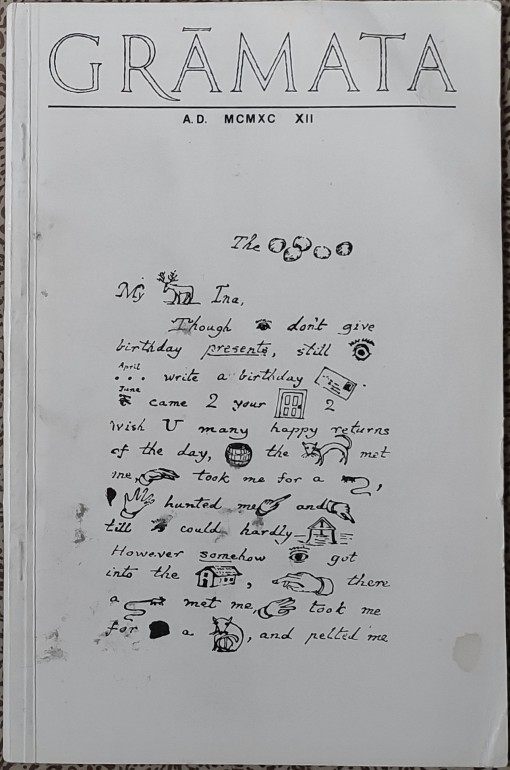 GRĀMATA
A.D. MCMXC XII
The
My Ina,
Though don't give
birthday presents, still
April
... write a birthday
June
came 2 your 2
wish U many happy returns
of the day, the met
me, took me for a ,
hunted me and
till could hardly
However somehow got
into the , there
a met me, took me
for a , and pelted me